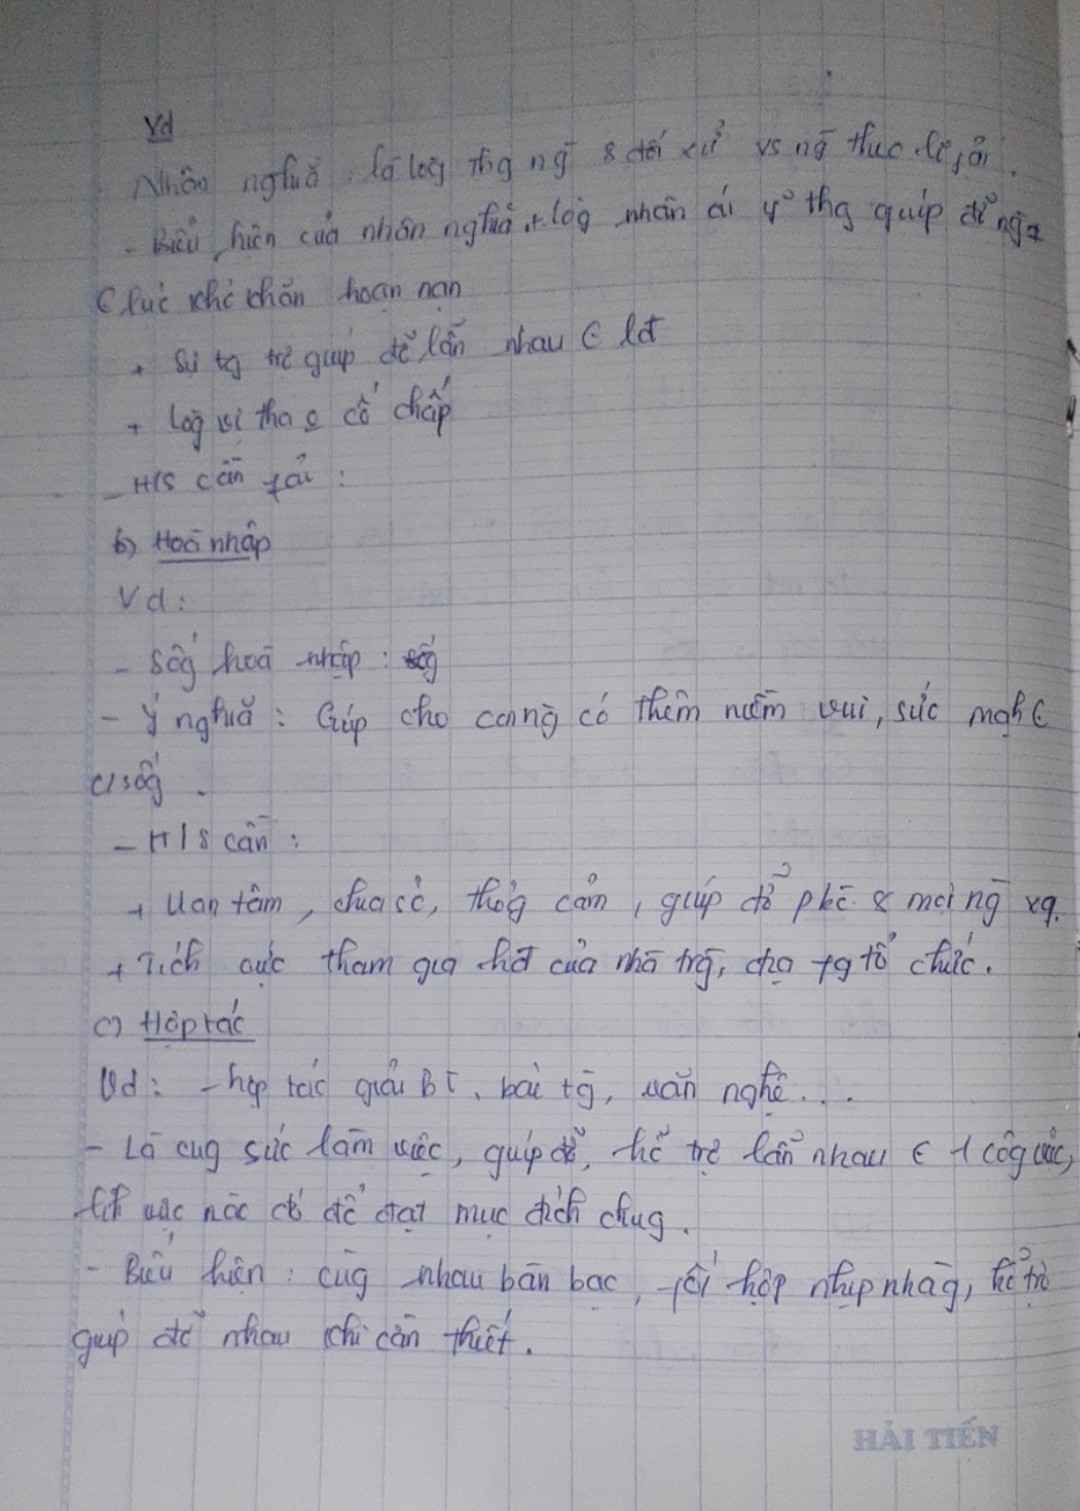 Vd
Nhân nghĩa: là lòg thg ng̀ & đối xử vs ng̀ theo lẽ fải.
- Biểu hiện của nhân nghĩa: + lòg nhân ái y² thg giúp đỡ ng̀
∈ lúc khó khăn hoạn nạn
+ Sự tg trợ giúp đỡ lẫn nhau ∈ lđ
+ Lòg vị tha & cố chấp
- H/S cần fải:
b) Hoà nhập
Vd:
- Sốg hoà nhập: sốg
- Ý nghĩa: Giúp cho con ng̀ có thêm niềm vui, sức mạh ∈
c/sốg.
- H/S cần:
+ Uan tâm, chia sẻ, thôg cảm, giúp đỡ & mọi ng̀ xq.
+ Tích cực tham gia hđ của nhà trg̀, tổ chức.
c) Hợp tác
Vd: - hợp tác giải BT, bài tg̀, văn nghệ...
- Là cùg sức làm việc, giúp đỡ, hỗ trợ lẫn nhau ∈ 1 côg việc,
vực nào đó để đạt mục đích chug.
- Biểu hiện: cùg nhau bàn bạc, fối hợp nhịp nhàg, hỗ trợ
giúp đỡ nhau khi cần thiết.
HẢI TIẾN